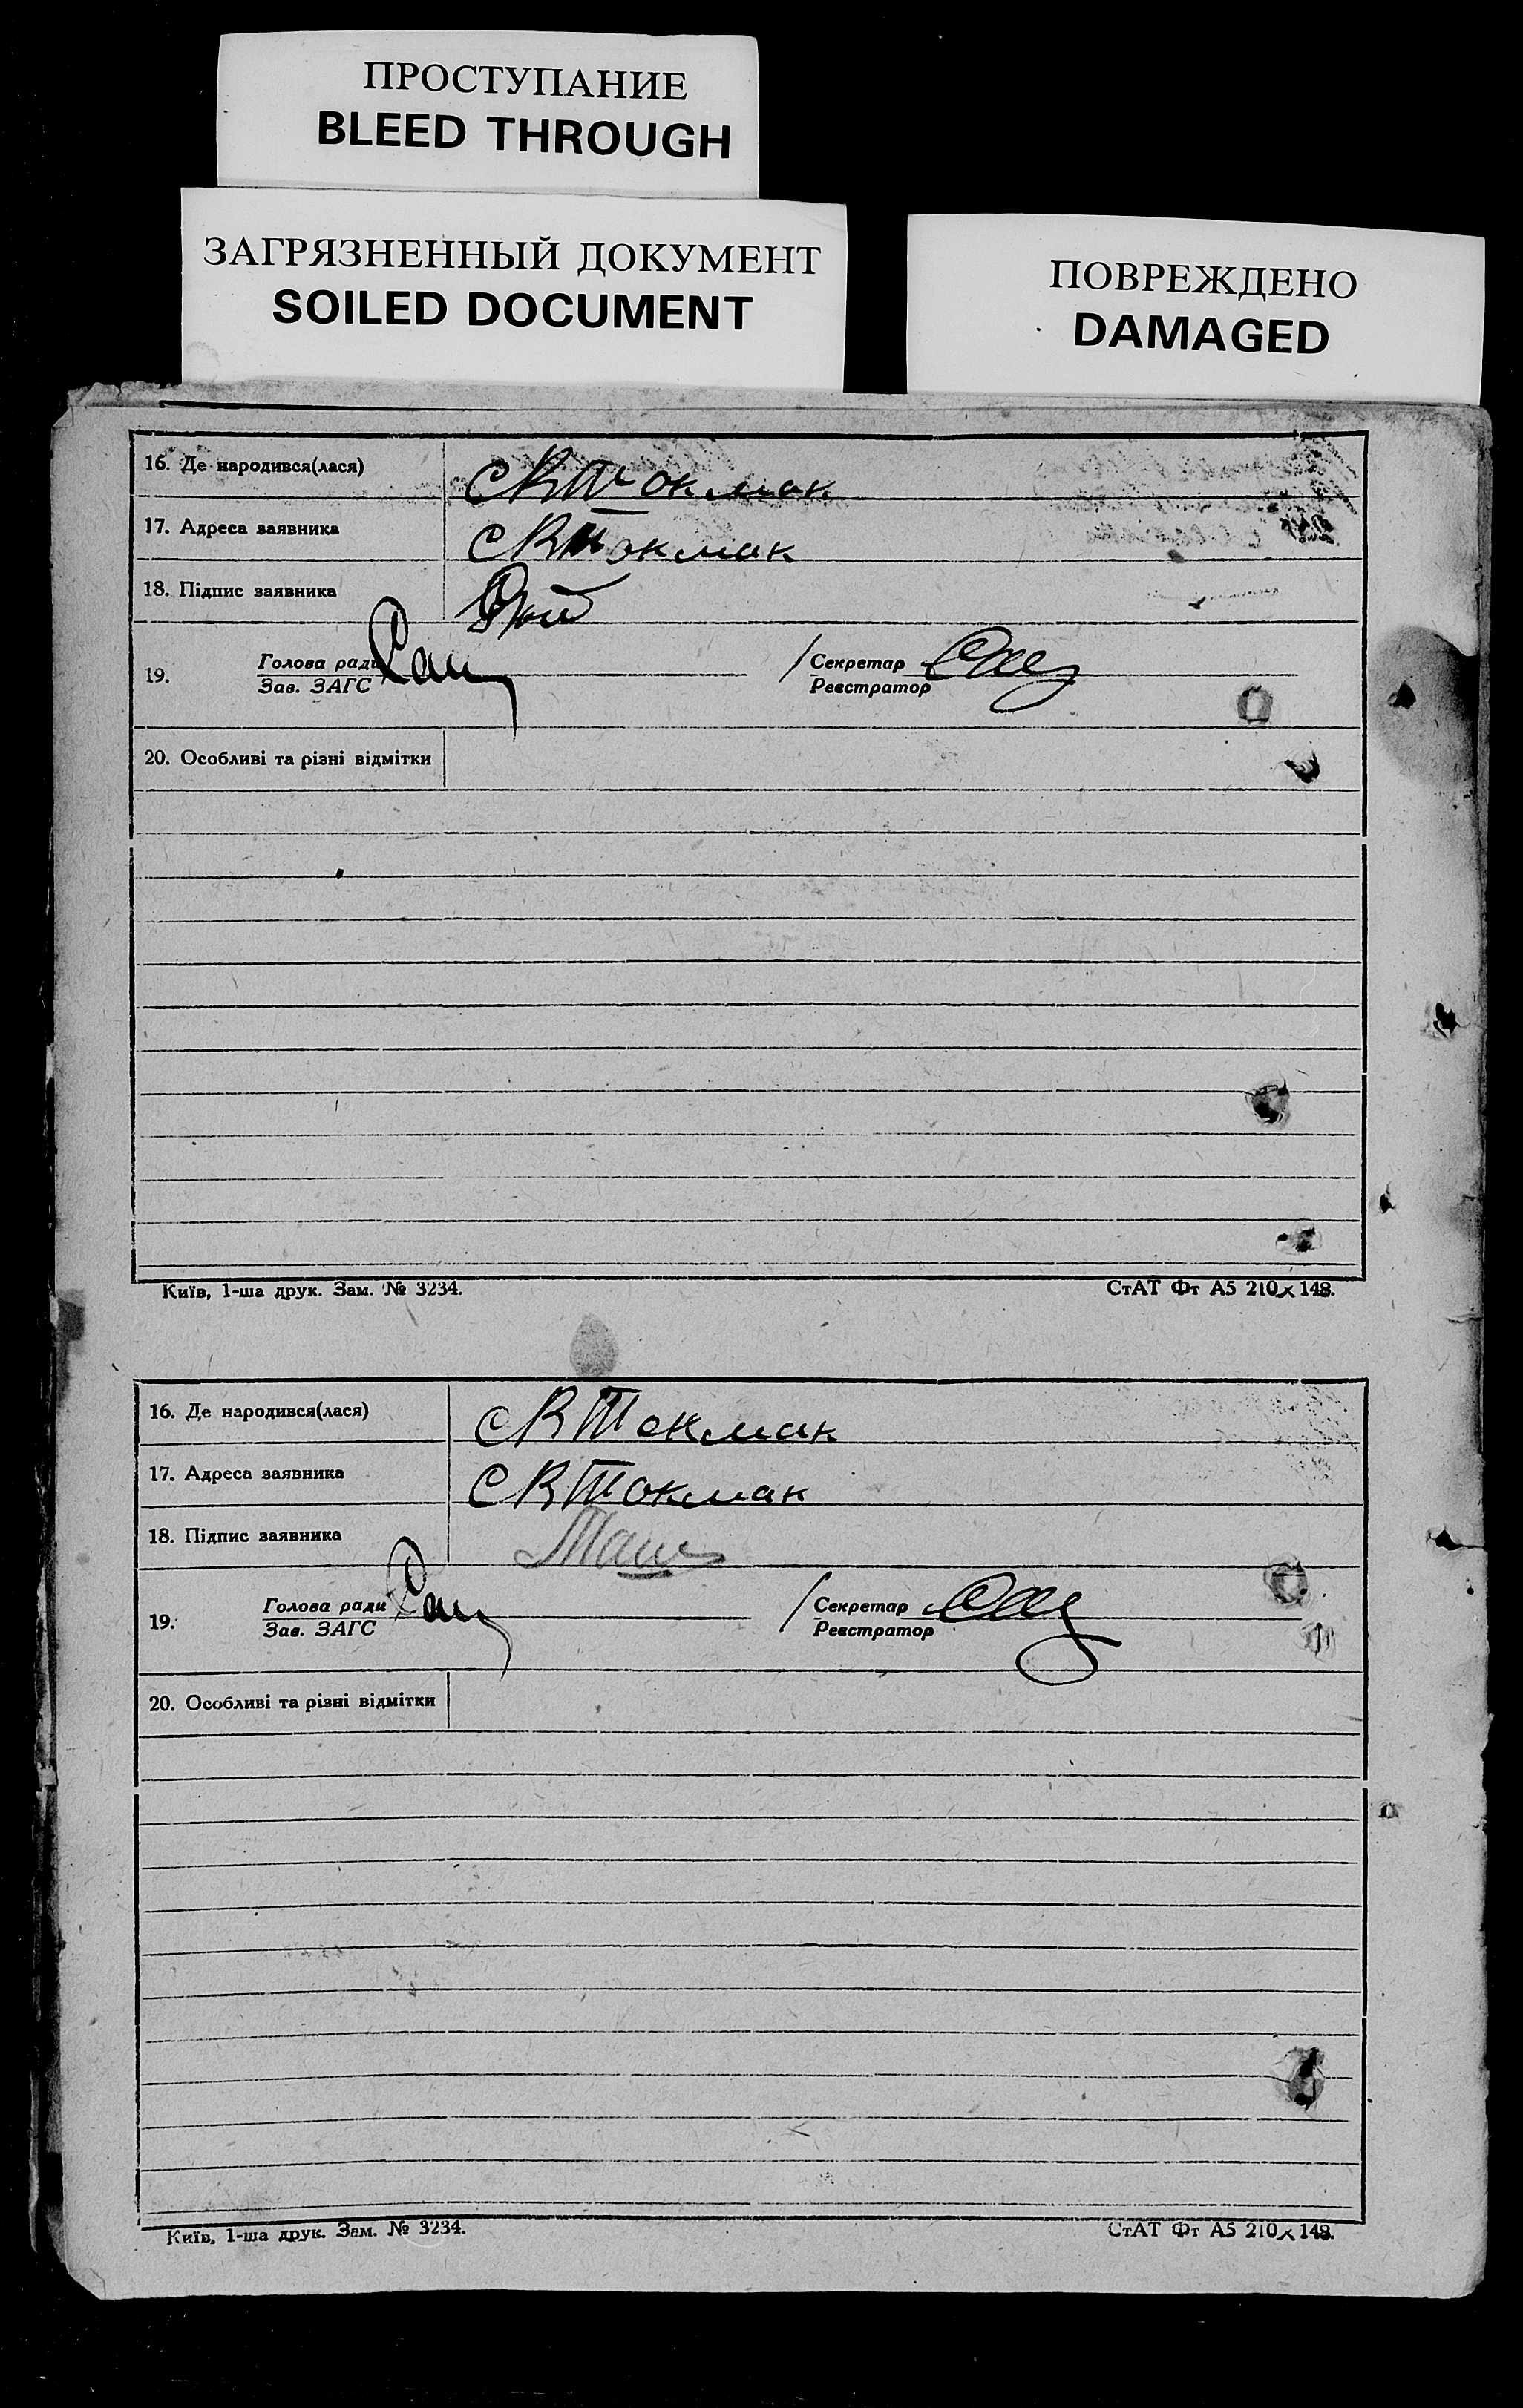 ПРОСТУПАНИЕ
BLEED THROUGH
ЗАГРЯЗНЕННЫЙ ДОКУМЕНТ
SOILED DOCUMENT
ПОВРЕЖДЕНО
DAMAGED
16. Де народився(лася) с В Токмак
17. Адреса заявника с В Токмак
18. Підпис заявника
19. Голова ради Секретар
Зав. ЗАГС Реєстратор
20. Особливі та різні відмітки
Київ, 1-ша друк. Зам. № 3234. СтАТ Фт А5 210×148.
16. Де народився(лася) с В Токмак
17. Адреса заявника с В Токмак
18. Підпис заявника
19. Голова ради Секретар
Зав. ЗАГС Реєстратор
20. Особливі та різні відмітки
Київ, 1-ша друк. Зам. № 3234. СтАТ Фт А5 210×148.